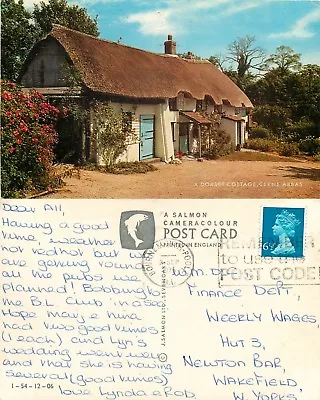 A DORSET COTTAGE, CERNE ABBAS
Dear All,
Having a good
time, weather
not red hot but we
are getting round
all the pubs we
planned! Bobbing
the B.L Club in a
Hope May & Nina
had two good times
(1 each) and Lyn's
wedding went well
and that she is having
several (good times)
love Lynda & Rob.
1-54-12-06
A SALMON
CAMERACOLOUR
POST CARD
PRINTED IN ENGLAND
J. SALMON LTD., SEVENOAKS
REMEMBER
to use the
POST CODE
W.M.D.C.
FINANCE DEPT,
WEEKLY WAGES,
HUT 3,
NEWTON BAR,
WAKEFIELD,
W. YORKS.